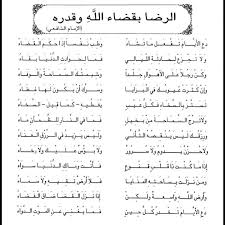 الرضا بقضاء الله وقدره
(الإمام الشافعي)
دع الأيام تفعل ما تشاء وطب نفسا إذا حكم القضاء
ولا تجزع لحادثة الليالي فما لحوادث الدنيا بقاء
وكن رجلا على الأهوال جلدا وشيمتك السماحة والوفاء
وإن كثرت عيوبك في البرايا وسرك أن يكون لها غطاء
تستر بالسخاء فكل عيب يغطيه كما قيل السخاء
ولا ترج السماحة من بخيل فما في النار للظمآن ماء
ورزقك ليس ينقصه التأني وليس يزيد في الرزق العناء
ولا حزن يدوم ولا سرور ولا بؤس عليك ولا رخاء
إذا ما كنت ذا قلب قنوع فأنت ومالك الدنيا سواء
ومن نزلت بساحته المنايا فلا أرض تقيه ولا سماء
وأرض الله واسعة ولكن إذا نزل القضا ضاق الفضاء
دع الأيام تغدر كل حين فما يغني عن الموت الدواء